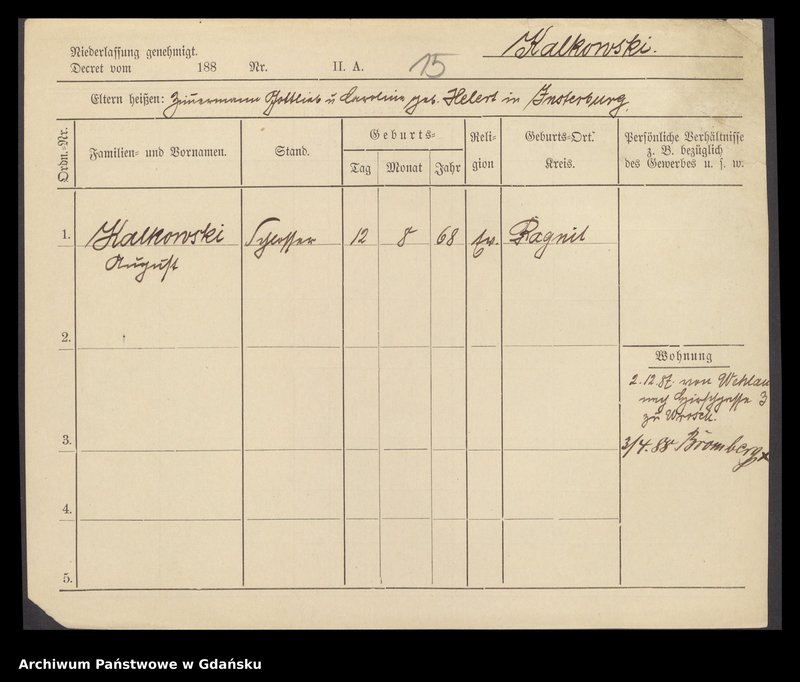 Kalkowski.
Niederlassung genehmigt.
Decret vom 188 Nr. II. A. 15
Eltern heißen: Zimmermann Gottlieb u Caroline geb. Helert in Insterburg.
Ordn.-Nr. Familien- und Vornamen. Stand. Geburts- Tag Monat Jahr Religion Geburts-Ort. Kreis. Persönliche Verhältnisse z. B. bezüglich des Gewerbes u. s. w.
1. Kalkowski Schlosser 12 8 68 Ev. Ragnit
August
2.
Wohnung
2.12.87. von Wehlau
nach Hirschgasse 3
zu
3.
3/4.88 Bromberg
4.
5.
Archiwum Państwowe w Gdańsku